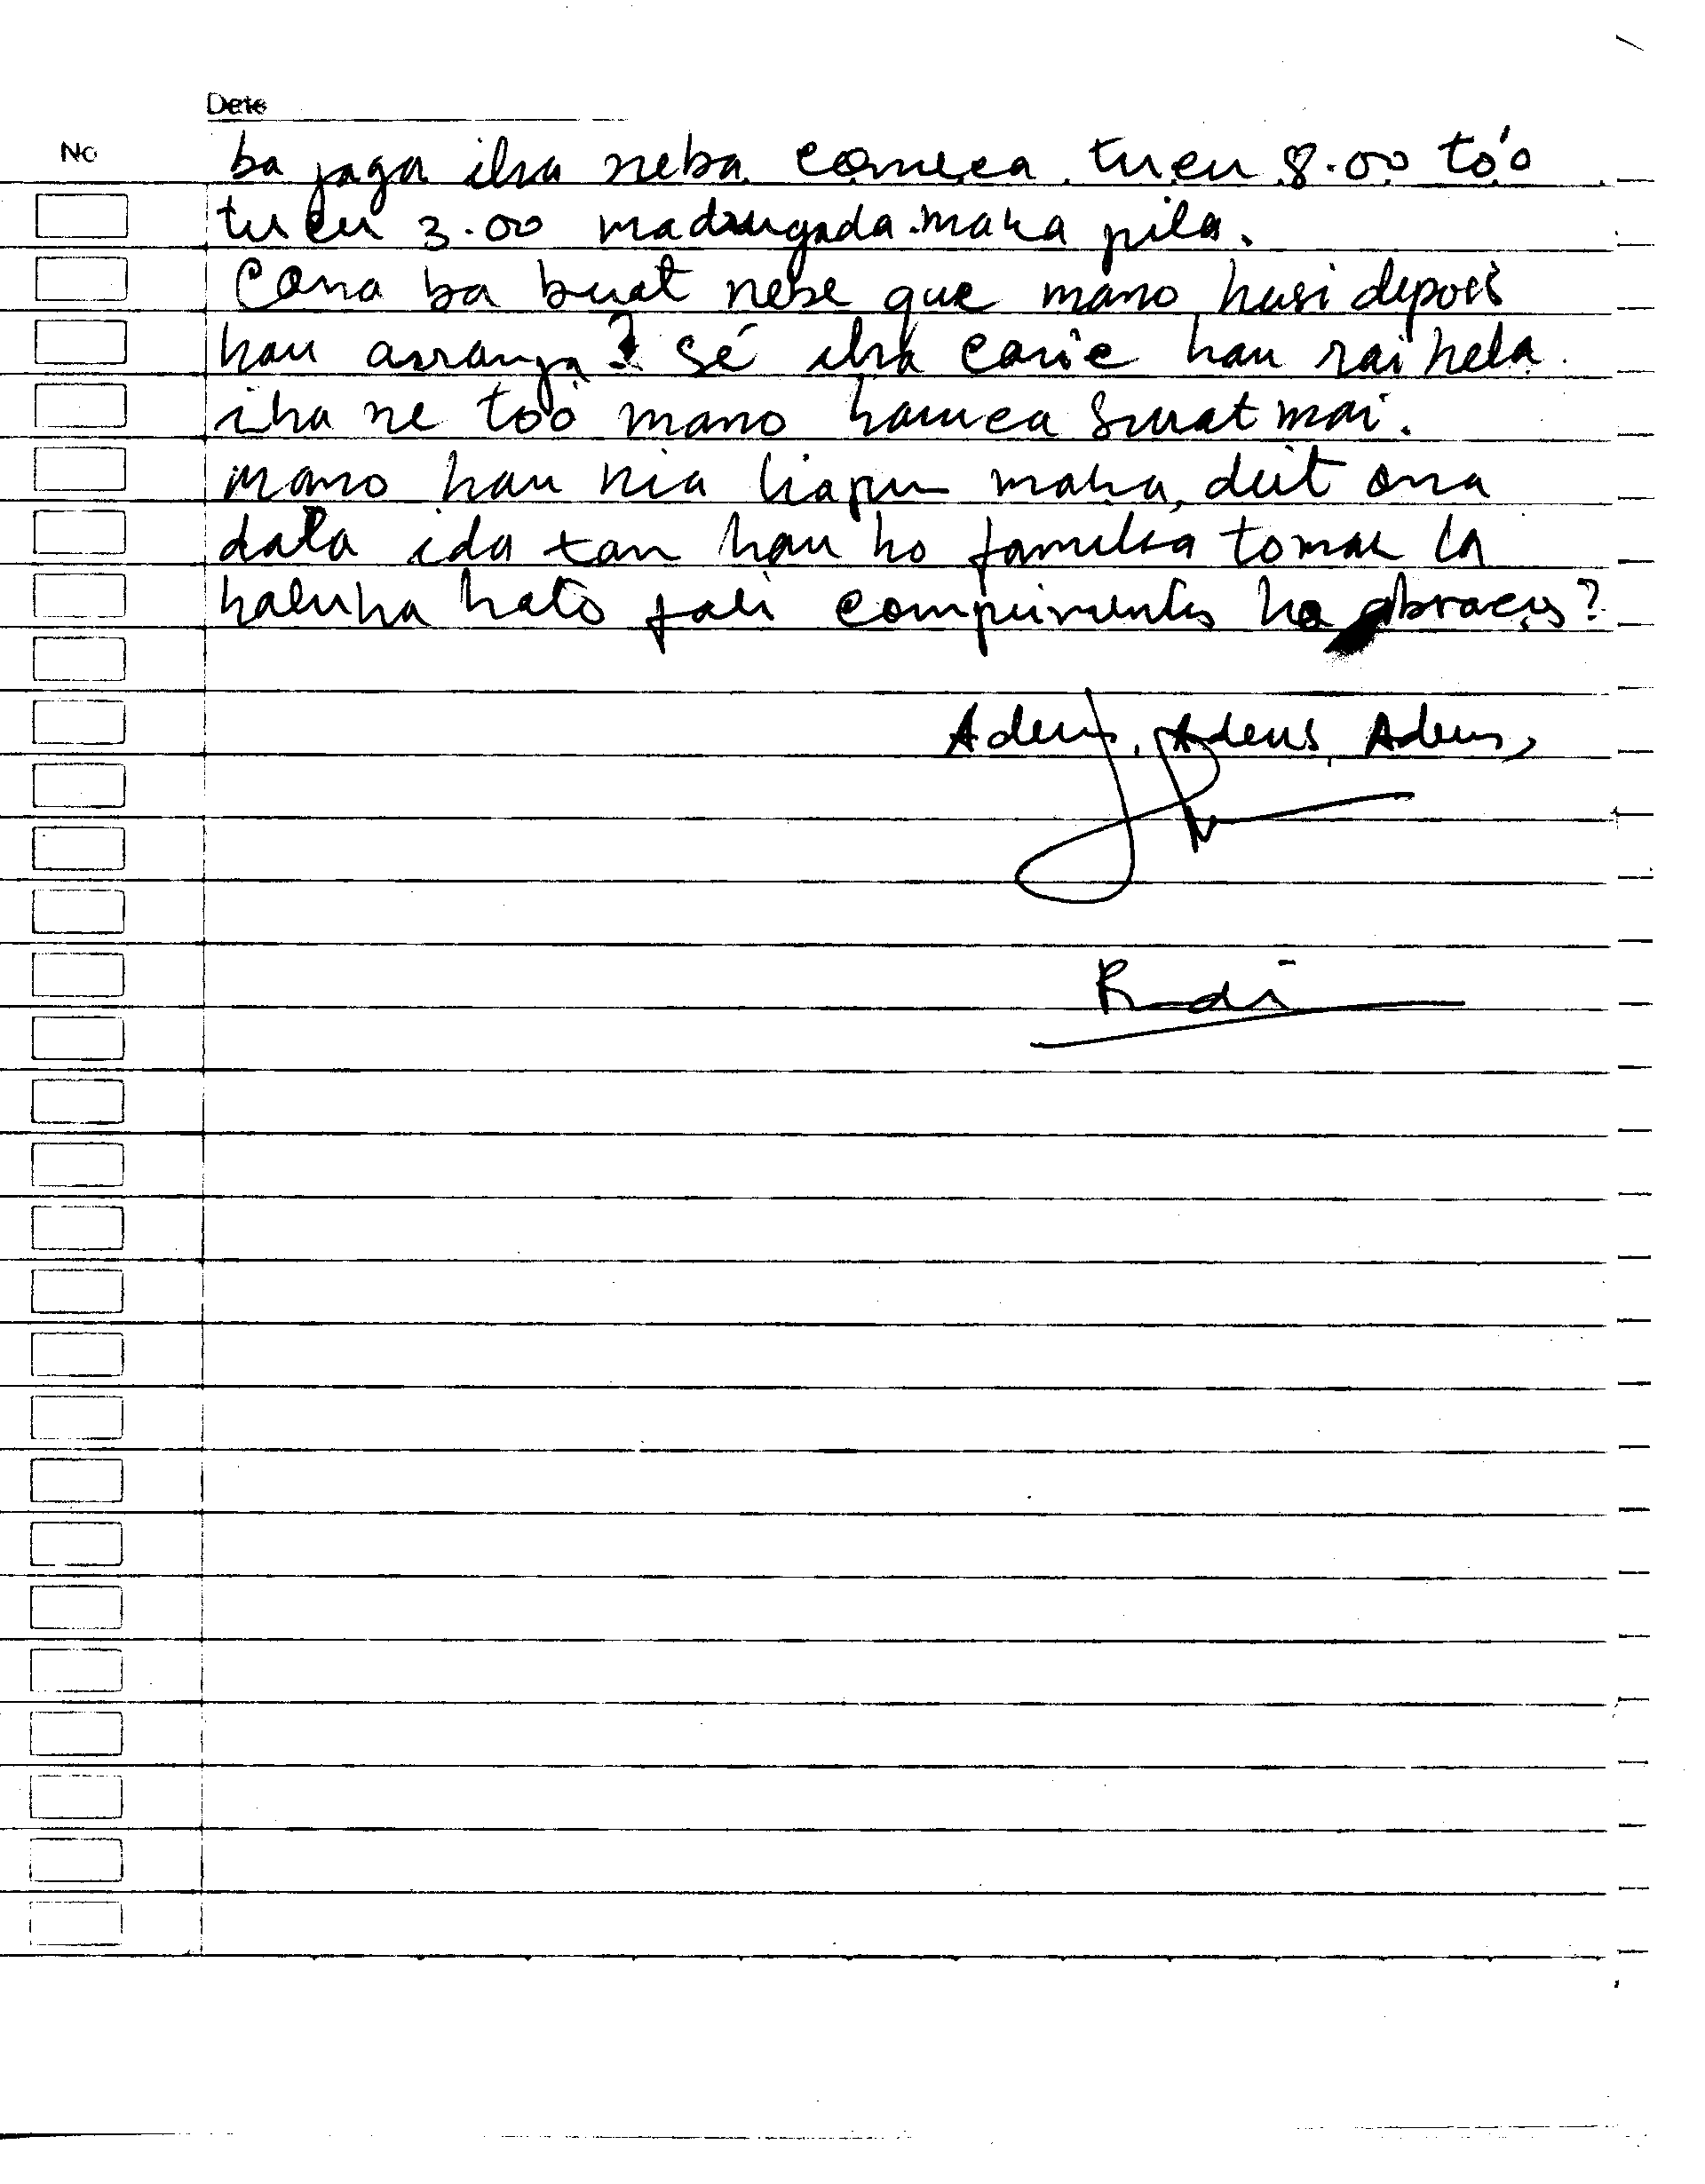 Date
No
ba jaga iha neba comeca tucu 8.00 tó'o
tucu 3.00 madrugada maka pila.
Cona ba buat nebe que mano husi depois
hau arranja? Sé iha carie hau rai hela
iha ne too mano haruca surat mai.
mano hau nia liafun maka deit ona
data ida tan hau ho familia tomak la
haluha hato fali comprimentos ho abraços?
Adeus, Adeus, Adeus,
Rudi